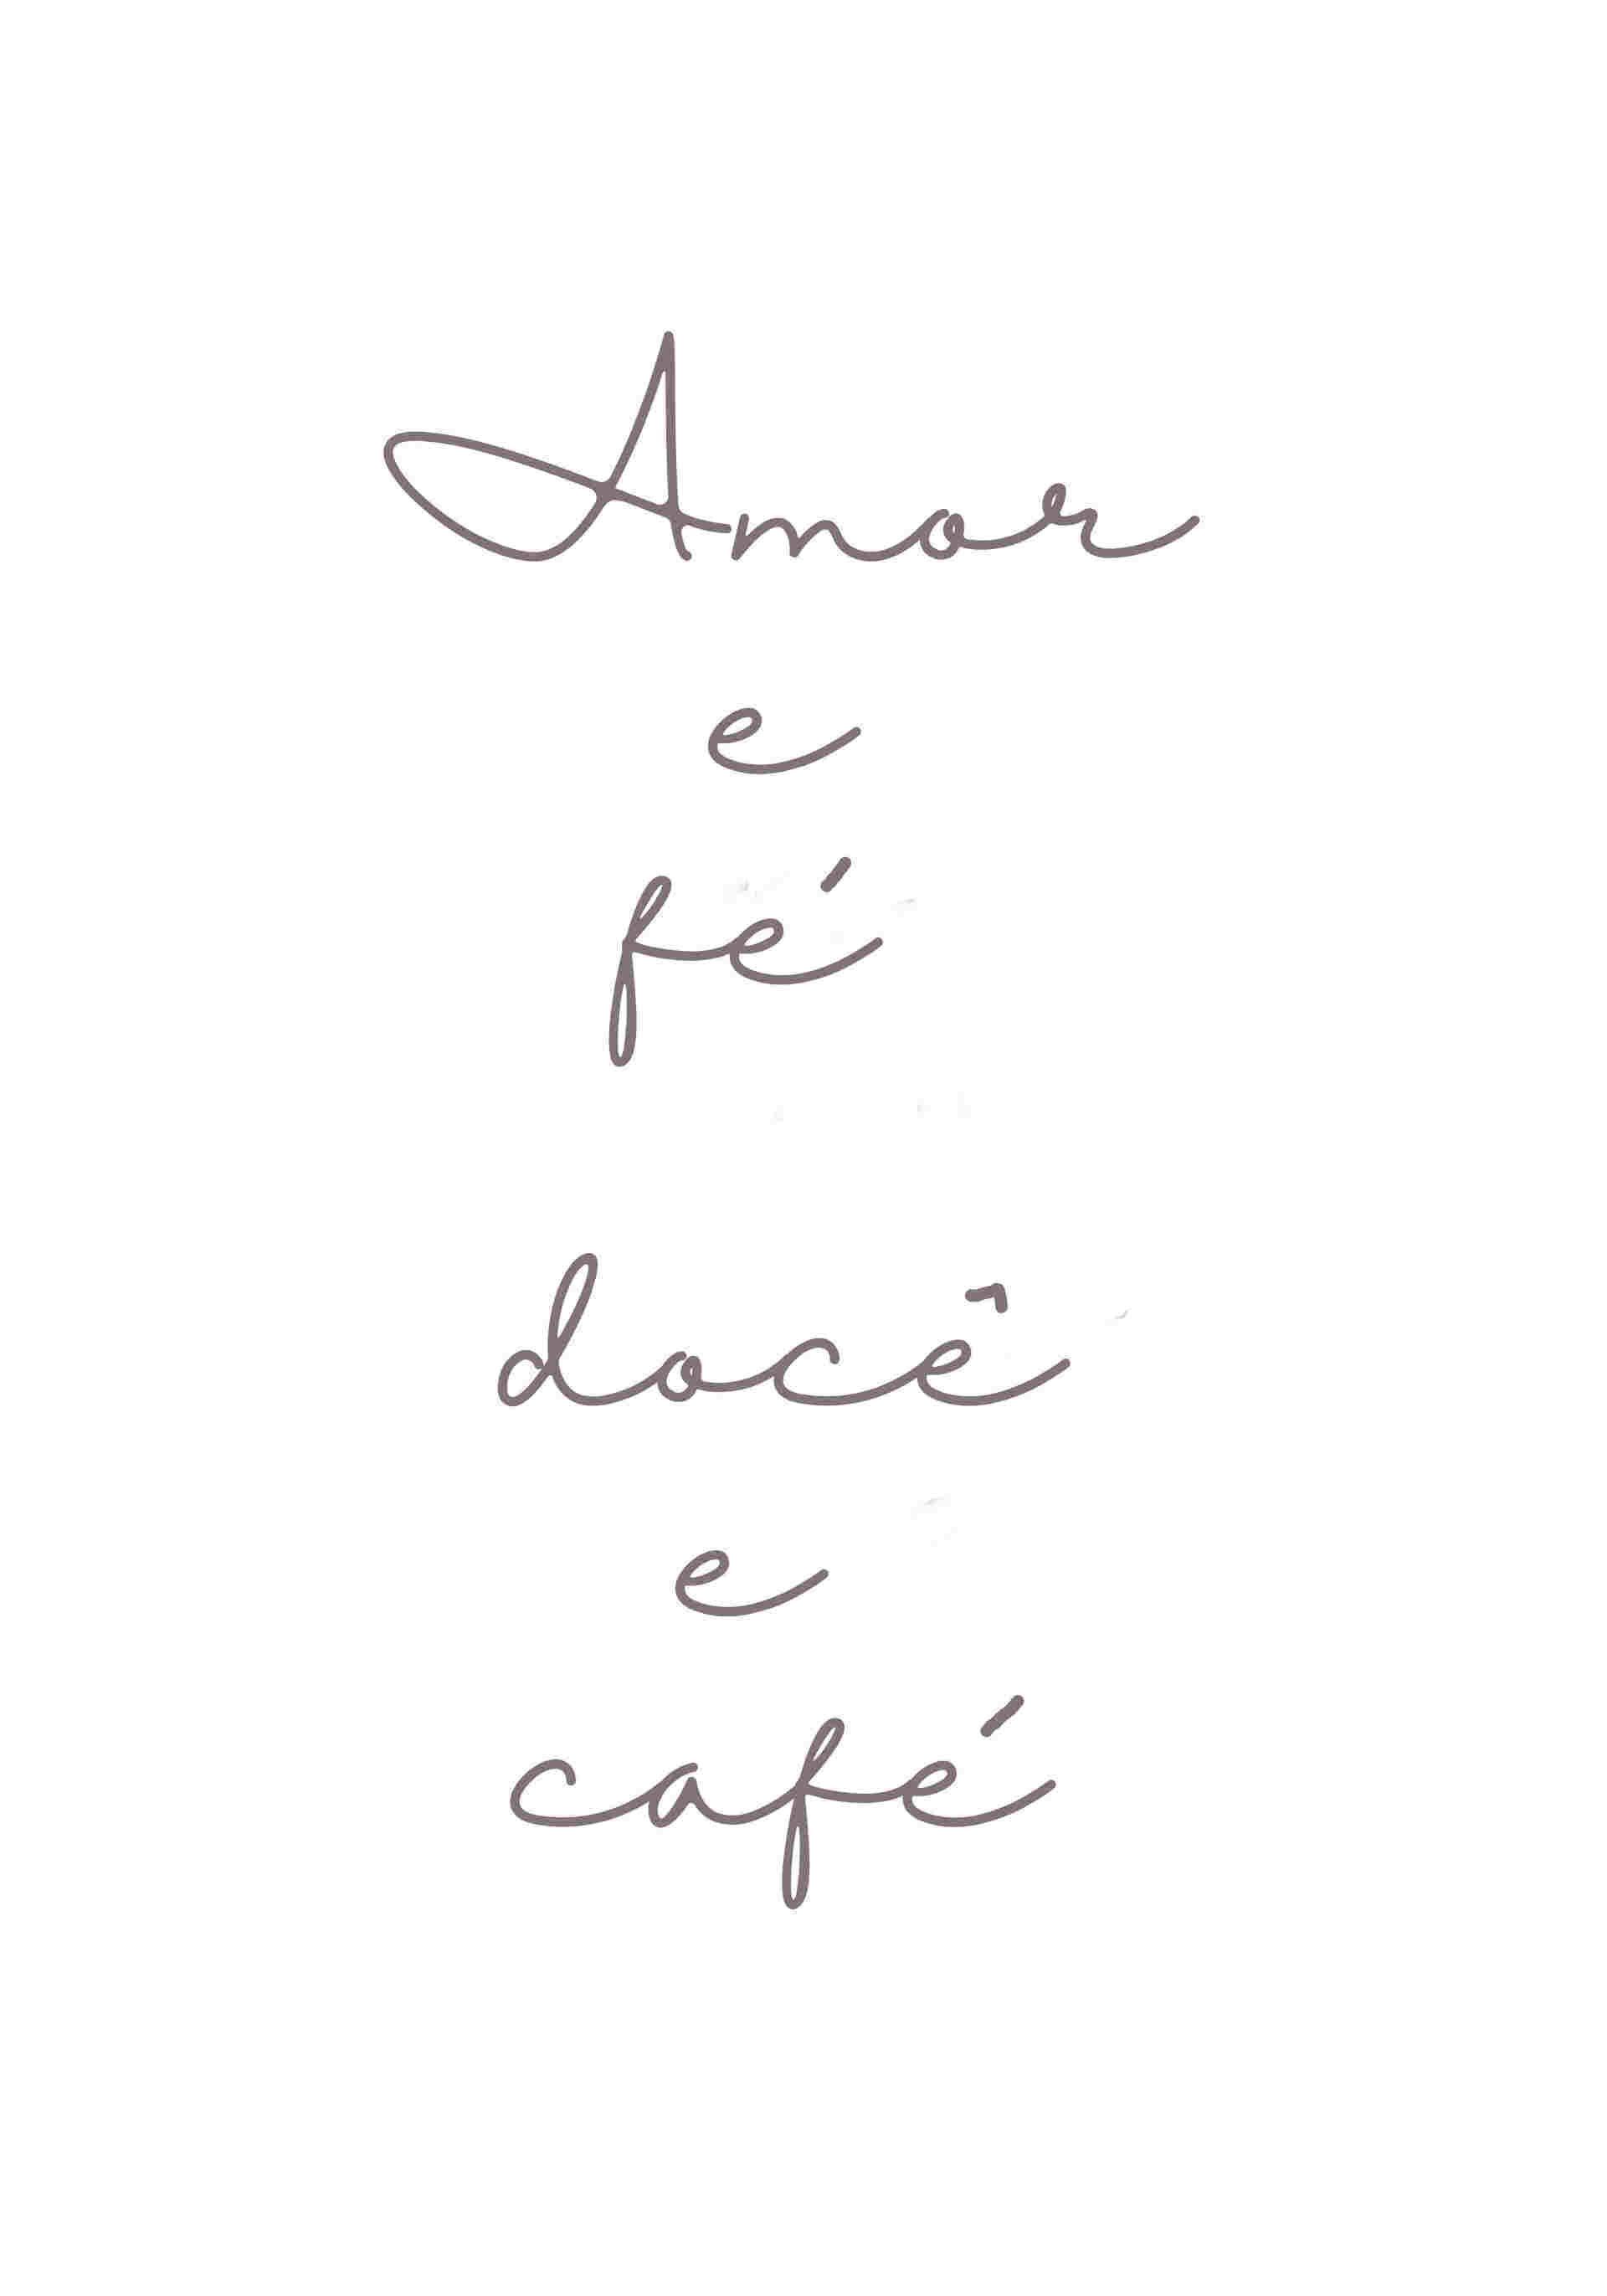 Amor
e
fé
docê
e
café